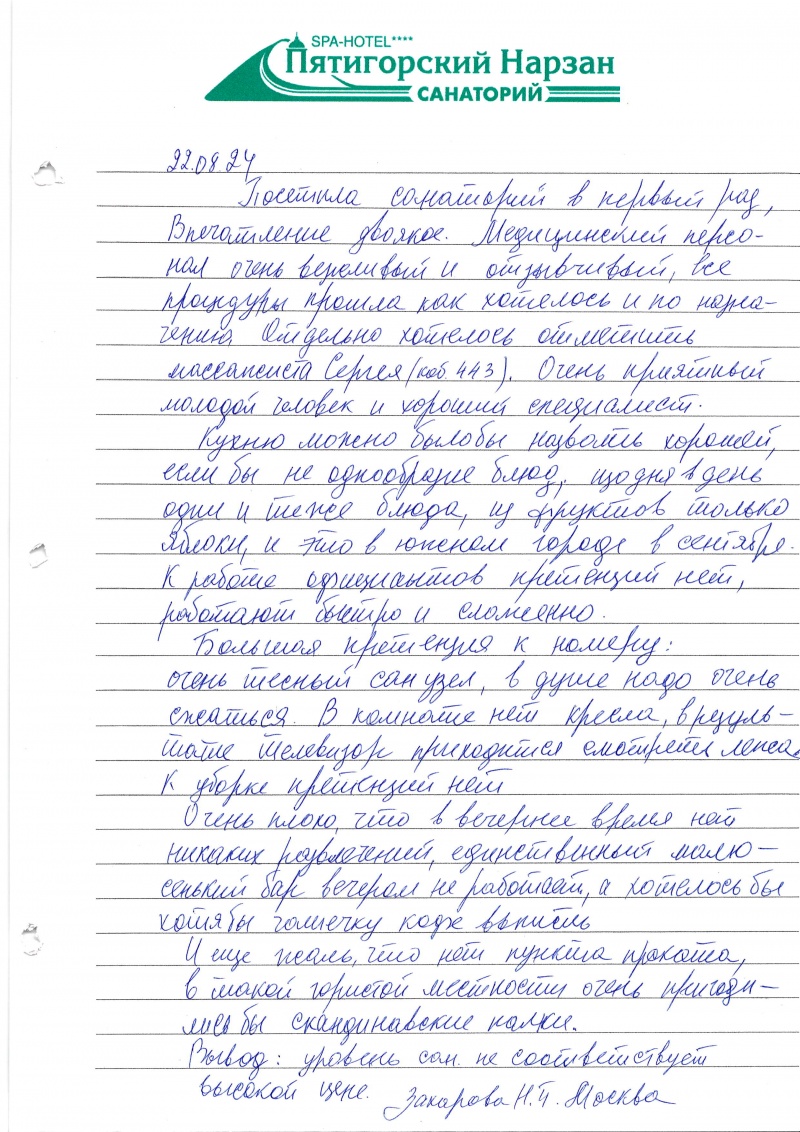 SPA-HOTEL****
Пятигорский Нарзан
САНАТОРИЙ
22.08.24
Посетила санаторий в первый раз,
Впечатление двоякое. Медицинский персо-
нал очень вежливый и отзывчивый, все
процедуры прошла как хотелось и по назна-
чению. Отдельно хотелось отметить
массажиста Сергея (каб. 443). Очень приятный
молодой человек и хороший специалист.
Кухню можно было бы назвать хорошей,
если бы не однообразие блюд, изо дня в день
одни и те же блюда, из фруктов только
яблоки, и это в южном городе в сентябре.
К работе официантов претензий нет,
работают быстро и слаженно.
Большая претензия к номеру:
очень тесный сан узел, в душе надо очень
сжаться. В комнате нет кресла, в резуль-
тате телевизор приходится смотреть лежа.
К уборке претензий нет
Очень плохо, что в вечернее время нет
никаких развлечений, единственный малю-
сенький бар вечером не работает, а хотелось бы
хотя бы чашечку кофе выпить
И еще жаль, что нет пункта проката,
в такой гористой местности очень пригоди-
лись бы скандинавские палки.
Вывод: уровень сан. не соответствует
высокой цене. Захарова Н.П. Москва